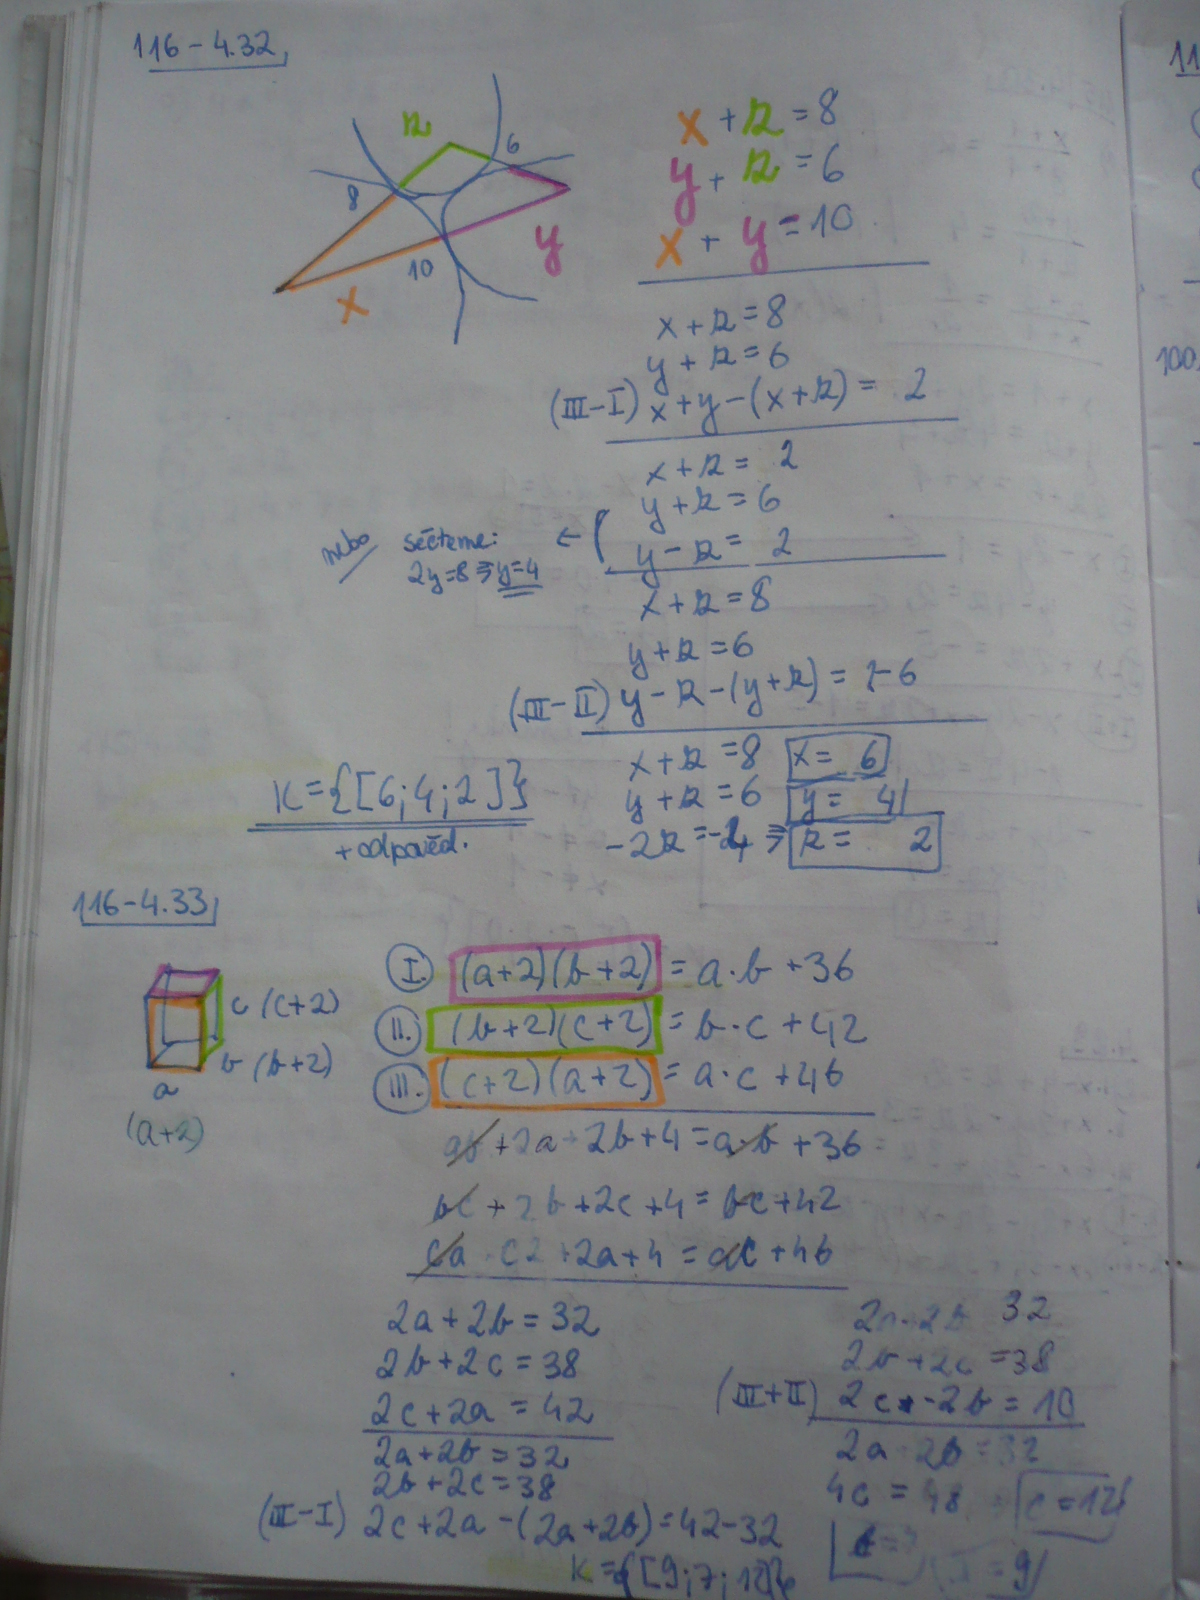 116-4.32
z
6
8
10
y
x
x + z = 8
y + z = 6
x + y = 10
x + z = 8
y + z = 6
(III-I) x+y-(x+z) = 2
x + z = 2
y + z = 6
y - z = 2
nebo sečteme:
2y=8 ⇒ y=4
x + z = 8
y + z = 6
(III-II) y - z -(y+z) = 2-6
x + z = 8 x = 6
y + z = 6 y = 4
-2z = -4 ⇒ z = 2
K={[6;4;2]}
+odpověď.
116-4.33
c (c+2)
b (b+2)
a
(a+2)
I. (a+2)(b+2) = a·b +36
II. (b+2)(c+2) = b·c +42
III. (c+2)(a+2) = a·c +46
ab +2a+2b+4=a·b +36
bc +2b+2c+4= bc+42
ca c2 +2a+4 = ac +46
2a+2b=32
2b+2c=38
2c+2a=42
2a+2b=32
2b+2c=38
(III-I) 2c+2a-(2a+2b)=42-32
2a 2b 32
2b+2c =38
(III+II) 2c-2b=10
2a 2b=32
4c = 48 c=12
= 9
K={[9;7;12]}
11
100